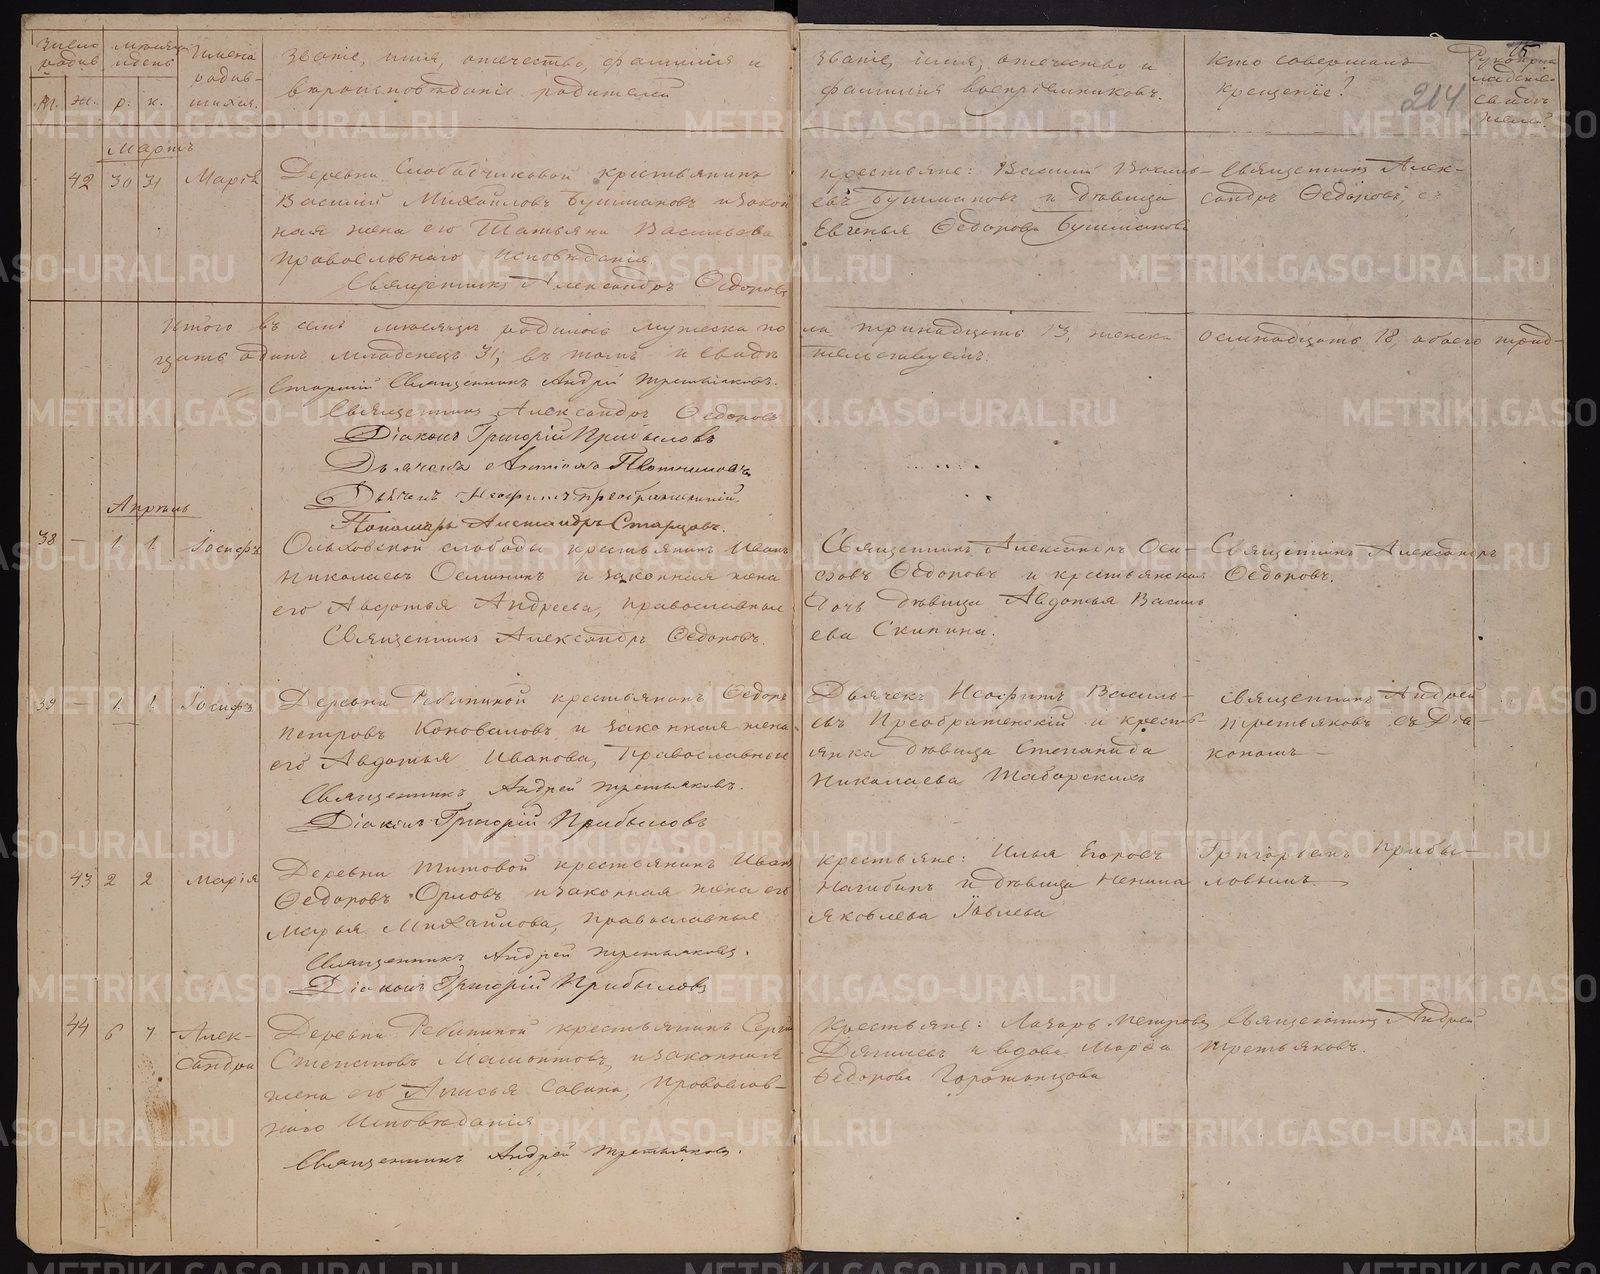 Число родив
м. ж.
месяцъ и день
р. к.
Имена родив-
шихся.
Званіе, имя, отчество, фамилія и
вѣроисповѣданіе родителей
Званіе, имя, отчество и
фамилія воспріемниковъ.
Кто совершалъ
крещеніе?
15
214
Мартъ
42 30 31 Марія
Деревни Слободчиковой крестьянинъ
Василій Михайловъ Бушмановъ и закон
ная жена его Татьяна Васильева
православнаго исповѣданія
Священникъ Александръ Ѳедоровъ
крестьяне: Василій Василь-
евъ Бушмановъ и дѣвица
Евгенья Ѳедорова Бушманова
Священникъ Алек-
сандръ Ѳедоровъ, съ
Итого въ семъ месяцѣ родилось мужеска по
ла тринадцать 13, женска
осмнадцать 18, обоего трид-
цать одинъ младенецъ 31; въ томъ и свидѣ
тельствуемъ.
Старшій Священникъ Андрей Третьяковъ.
Священникъ Александръ Ѳедоровъ
Діаконъ Григорій Прибыловъ
Дьячекъ Антонъ Плотниковъ
Дьячекъ Неофитъ Преображенскій
Пономарь Александръ Старцовъ.
Апрѣль
38 — 1 1 Іосифъ
Ольховской слободы крестьянинъ Иванъ
Николаевъ Осминин и законная жена
его Авдотья Андреева, православные
Священникъ Александръ Ѳедоровъ.
Священникъ Александръ Оси-
повъ Ѳедоровъ и крестьянская
дочь дѣвица Авдотья Василь
ева Скипина.
Священникъ Александръ
Ѳедоровъ.
39 — 1 1 Іосифъ
Деревни Рябининой крестьянинъ Ѳедоръ
Петровъ Коноваловъ и законная жена
его Авдотья Иванова, Православные
Священникъ Андрей Третьяковъ.
Діаконъ Григорій Прибыловъ
Дьячекъ Неофитъ Василь-
евъ Преображенскій и кресть-
янка дѣвица Степанида
Николаева Таборскихъ
Священникъ Андрей
Третьяковъ съ Діа-
кономъ —
43 2 2 Марія
Деревни Титовой крестьянинъ Иванъ
Ѳедоровъ Орловъ и законная жена его
Марья Михайлова, православные
Священникъ Андрей Третьяковъ.
Діаконъ Григорій Прибыловъ
крестьяне: Илья Егоровъ
Нагибинъ и дѣвица Ненила
Яковлева Іовлева
Григорьемъ Прибы-
ловымъ
44 6 7 Алек-
сандра
Деревни Рябининой крестьянинъ Сергій
Степановъ Мамонтовъ, и законная
жена его Анисья Савина, Православ-
наго исповѣданія
Священникъ Андрей Третьяковъ.
Крестьяне: Лазарь Петровъ
Дягилевъ и вдова Марѳа
Ѳедорова Горожанцова
Священникъ Андрей
Третьяковъ.
METRIKI.GASO-URAL.RU